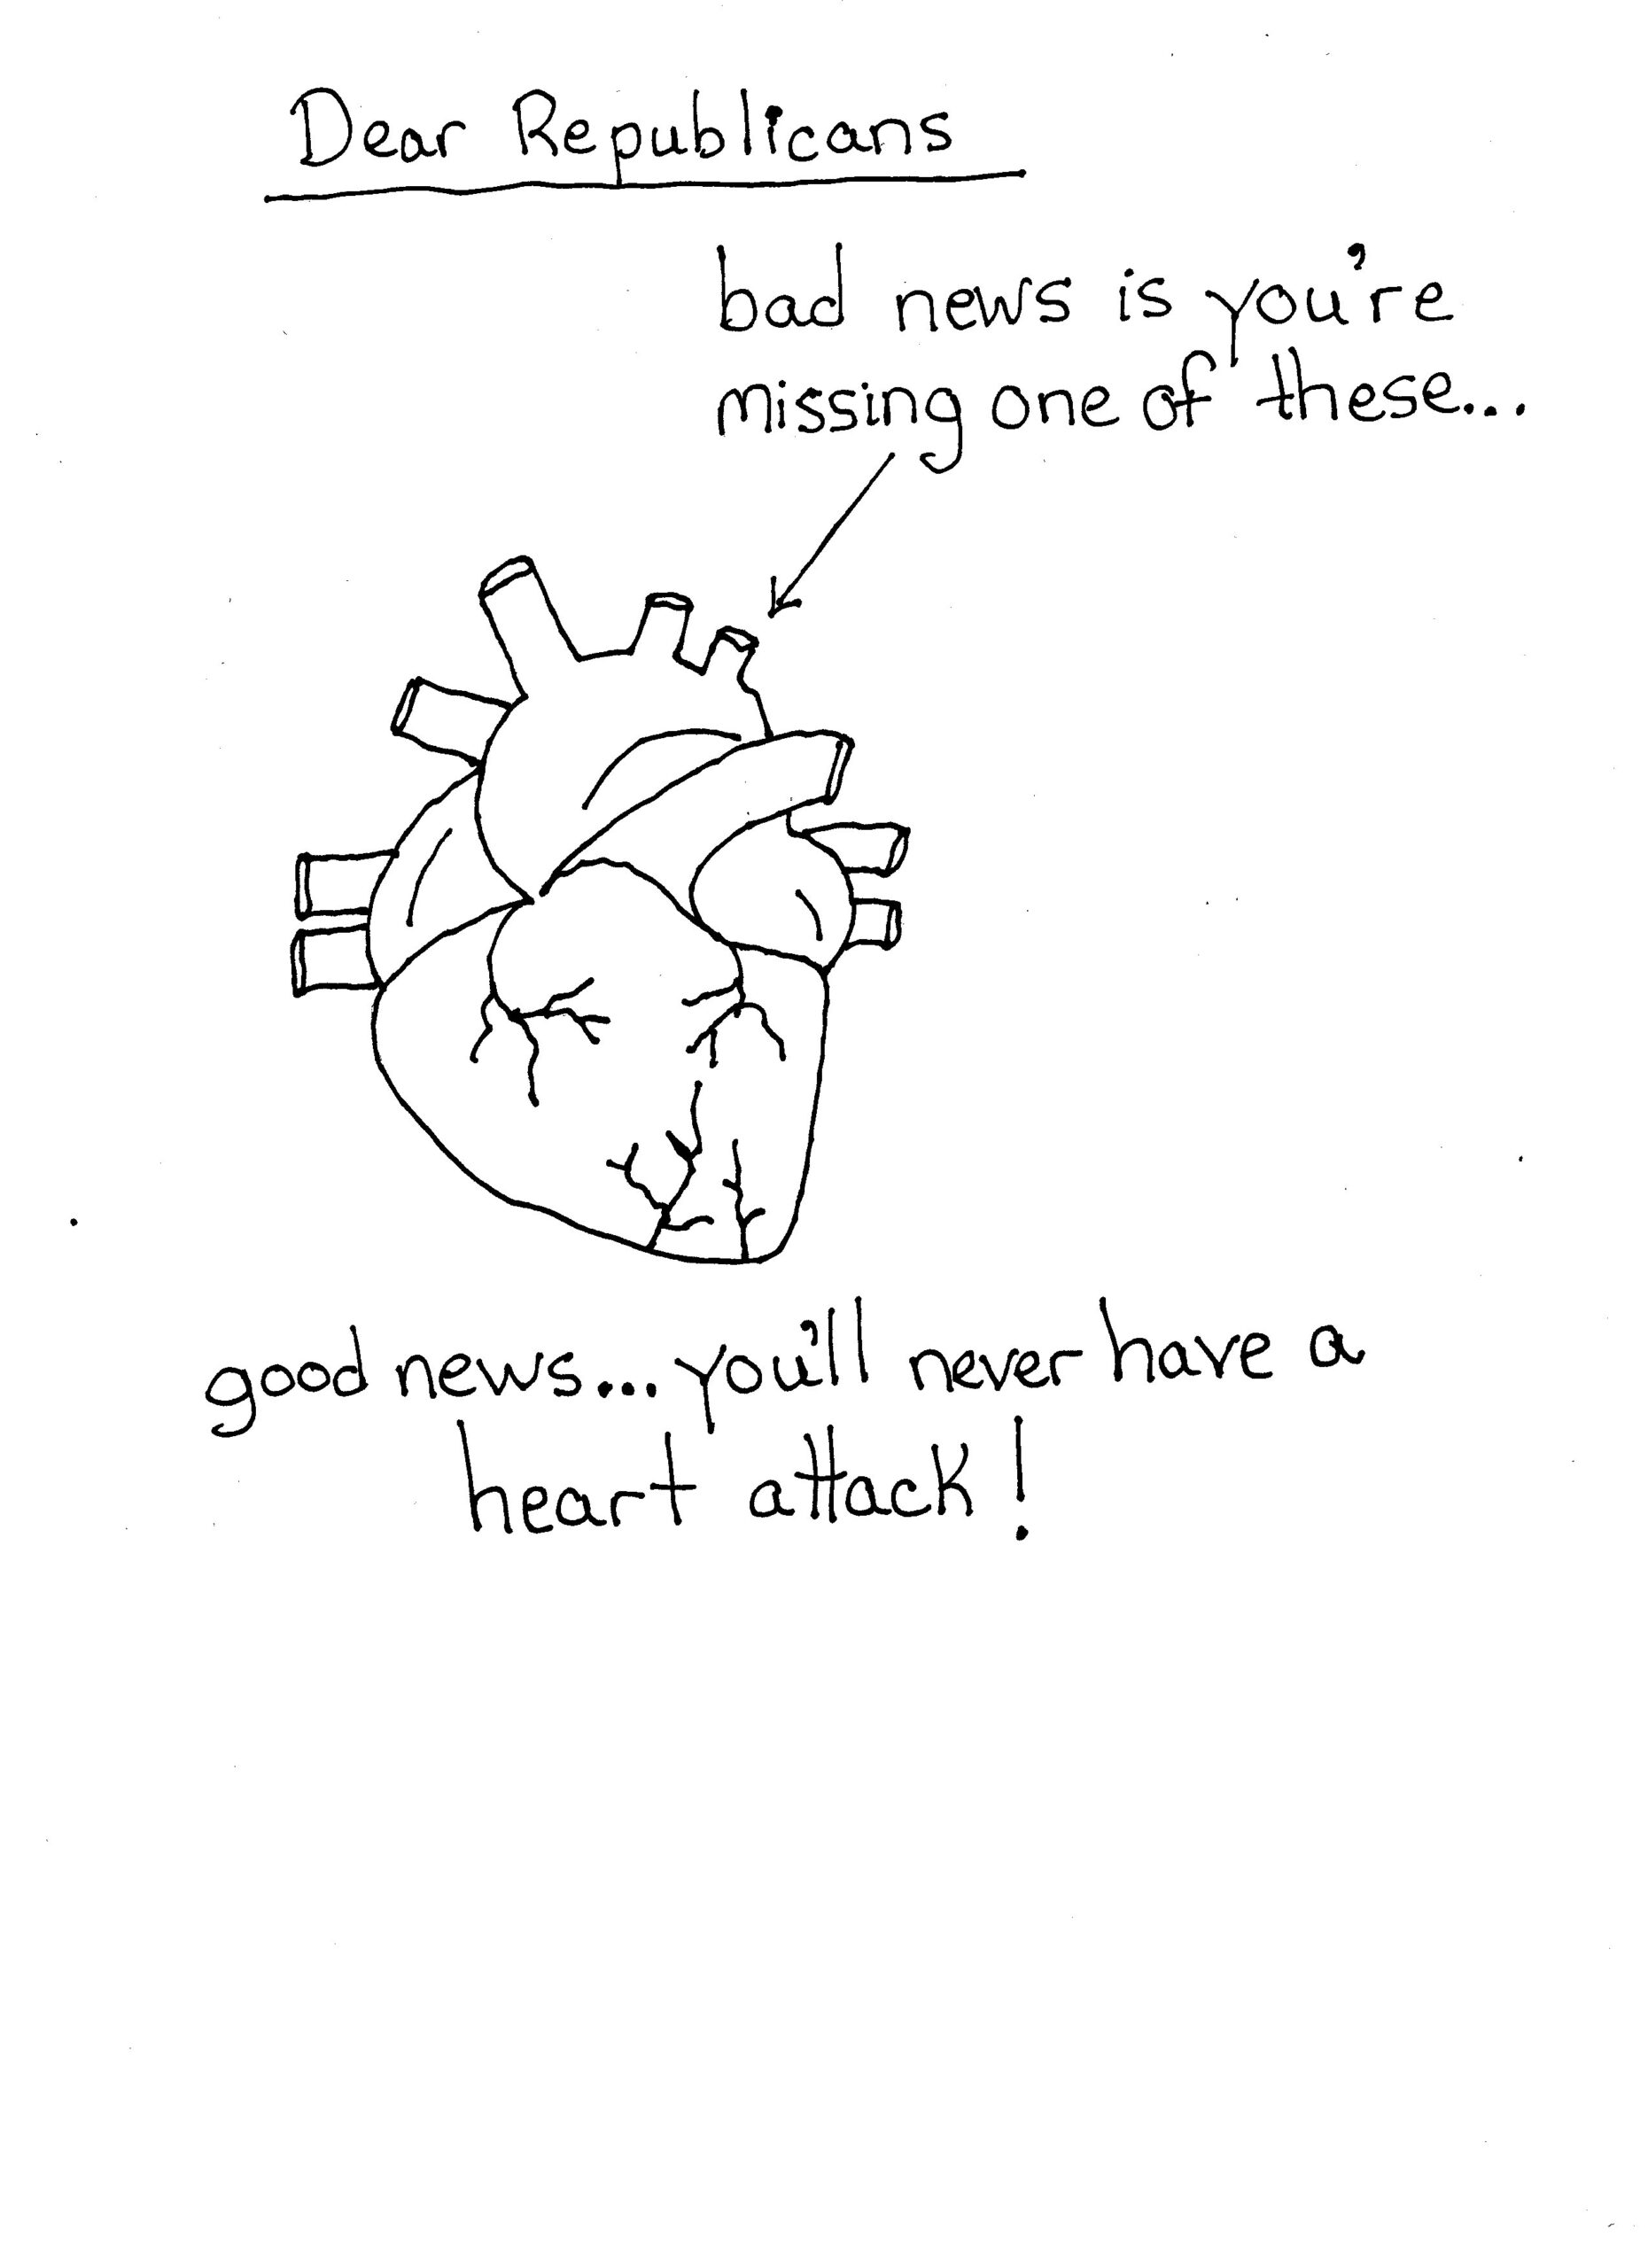 Dear Republicans
bad news is you're
missing one of these...
good news... you'll never have a
heart attack!